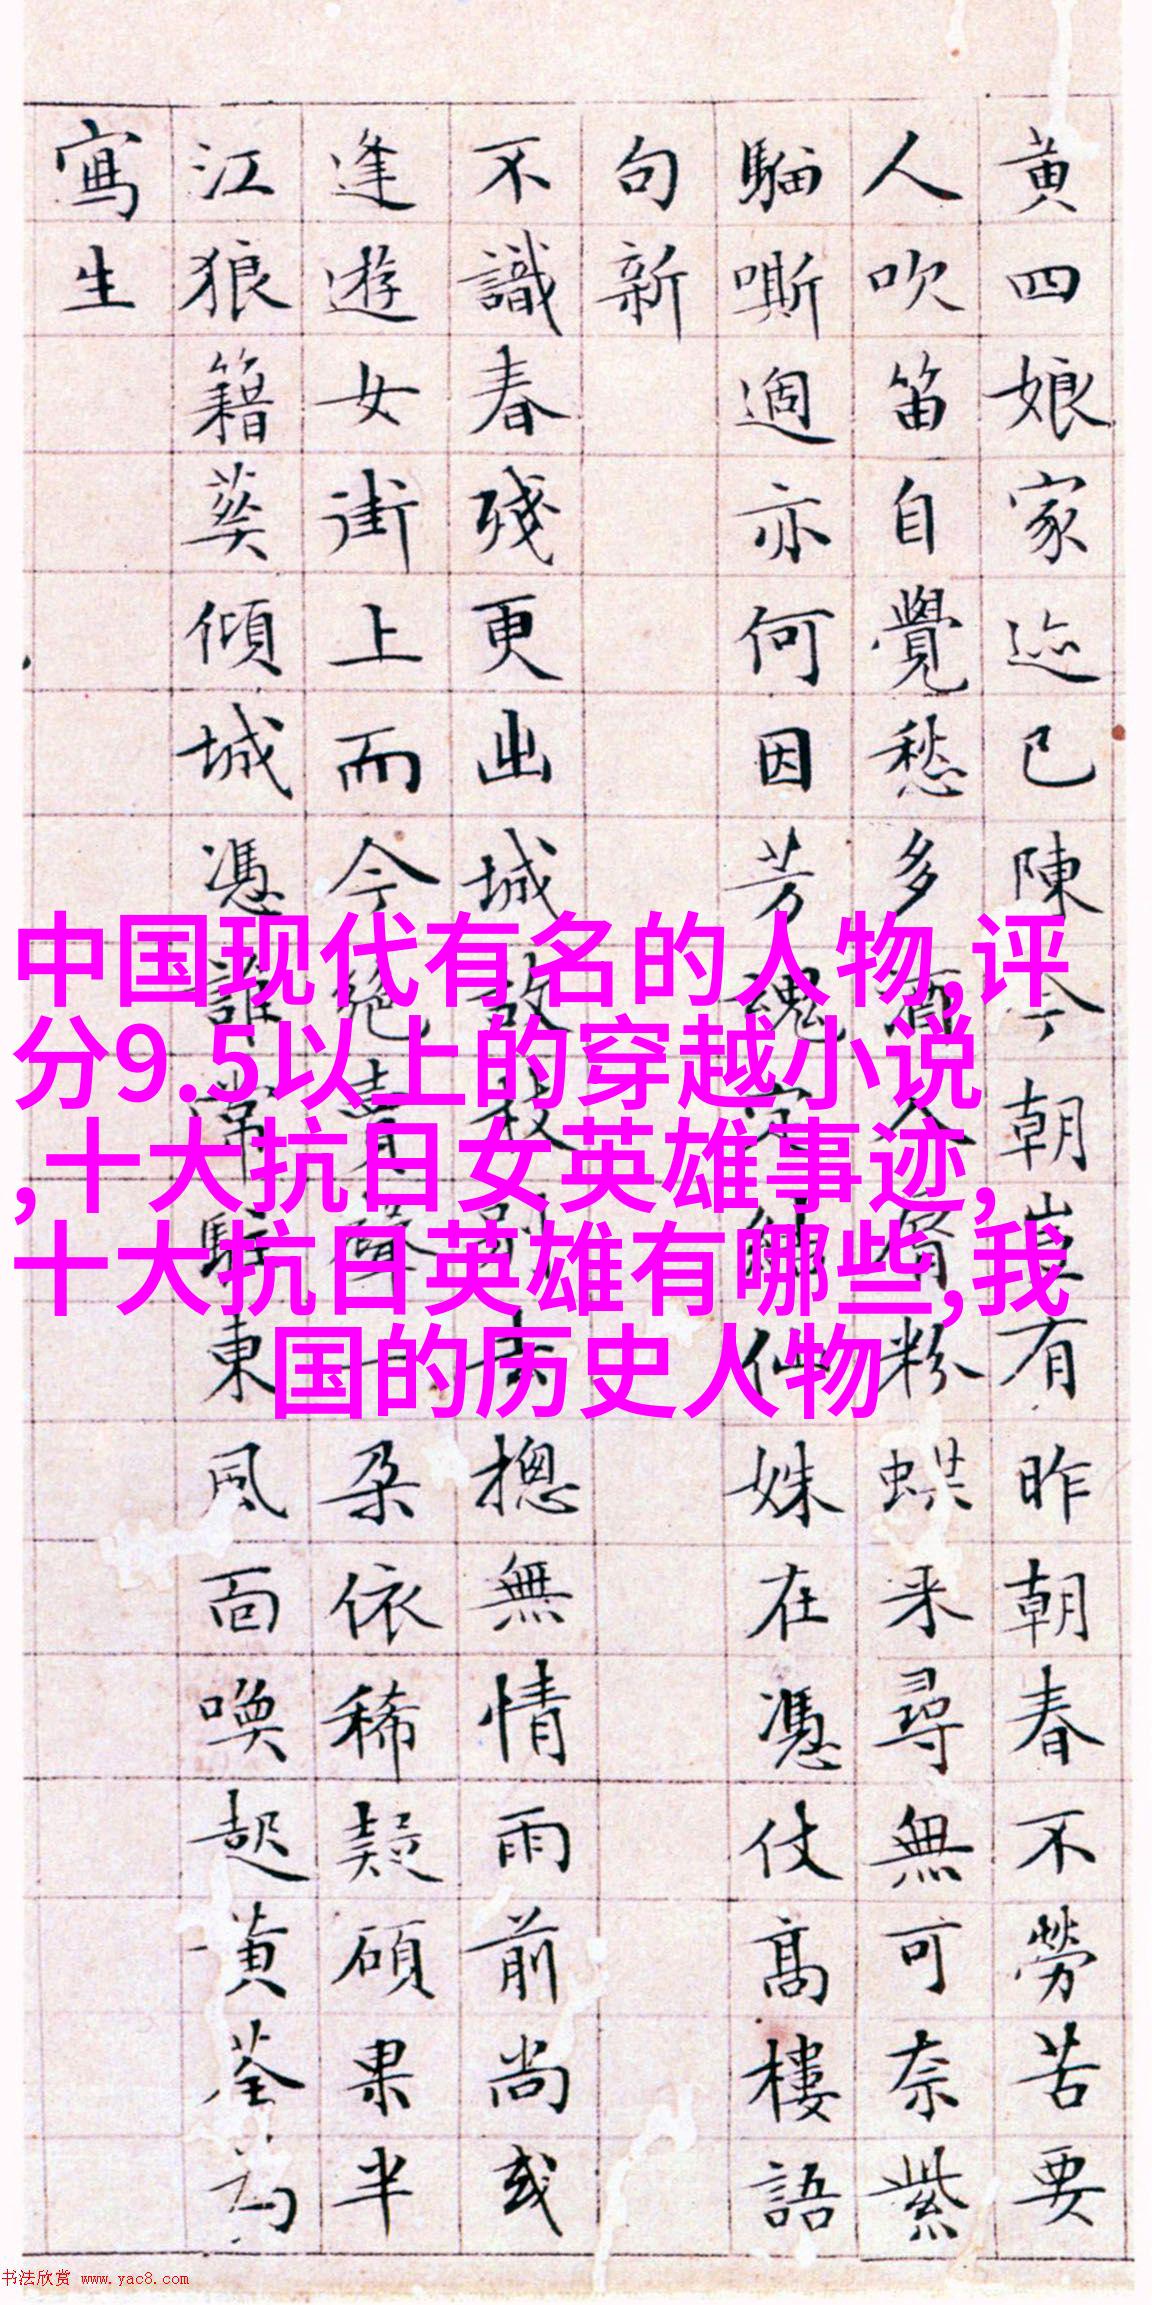 黄四娘家迹已陳今朝豈有昨朝春不勞苦要
人吹笛自覺愁多酒粉蜨来尋無可奈紫
騮嘶過亦何因芳魂定仙姝在憑仗高樓語
句新
不識春殘更出城故枝別去揔無情雨前尚或
逢遊女街上而今絶賣聲一朶依稀疑碩果半
江狼籍葵傾城憑誰常駐東風面喚起黄荃為
寫生
中国现代有名的人物,评
分9.5以上的穿越小说
,十大抗日女英雄事迹,
十大抗日英雄有哪些,我
国的历史人物
书法欣赏 www.yac8.com